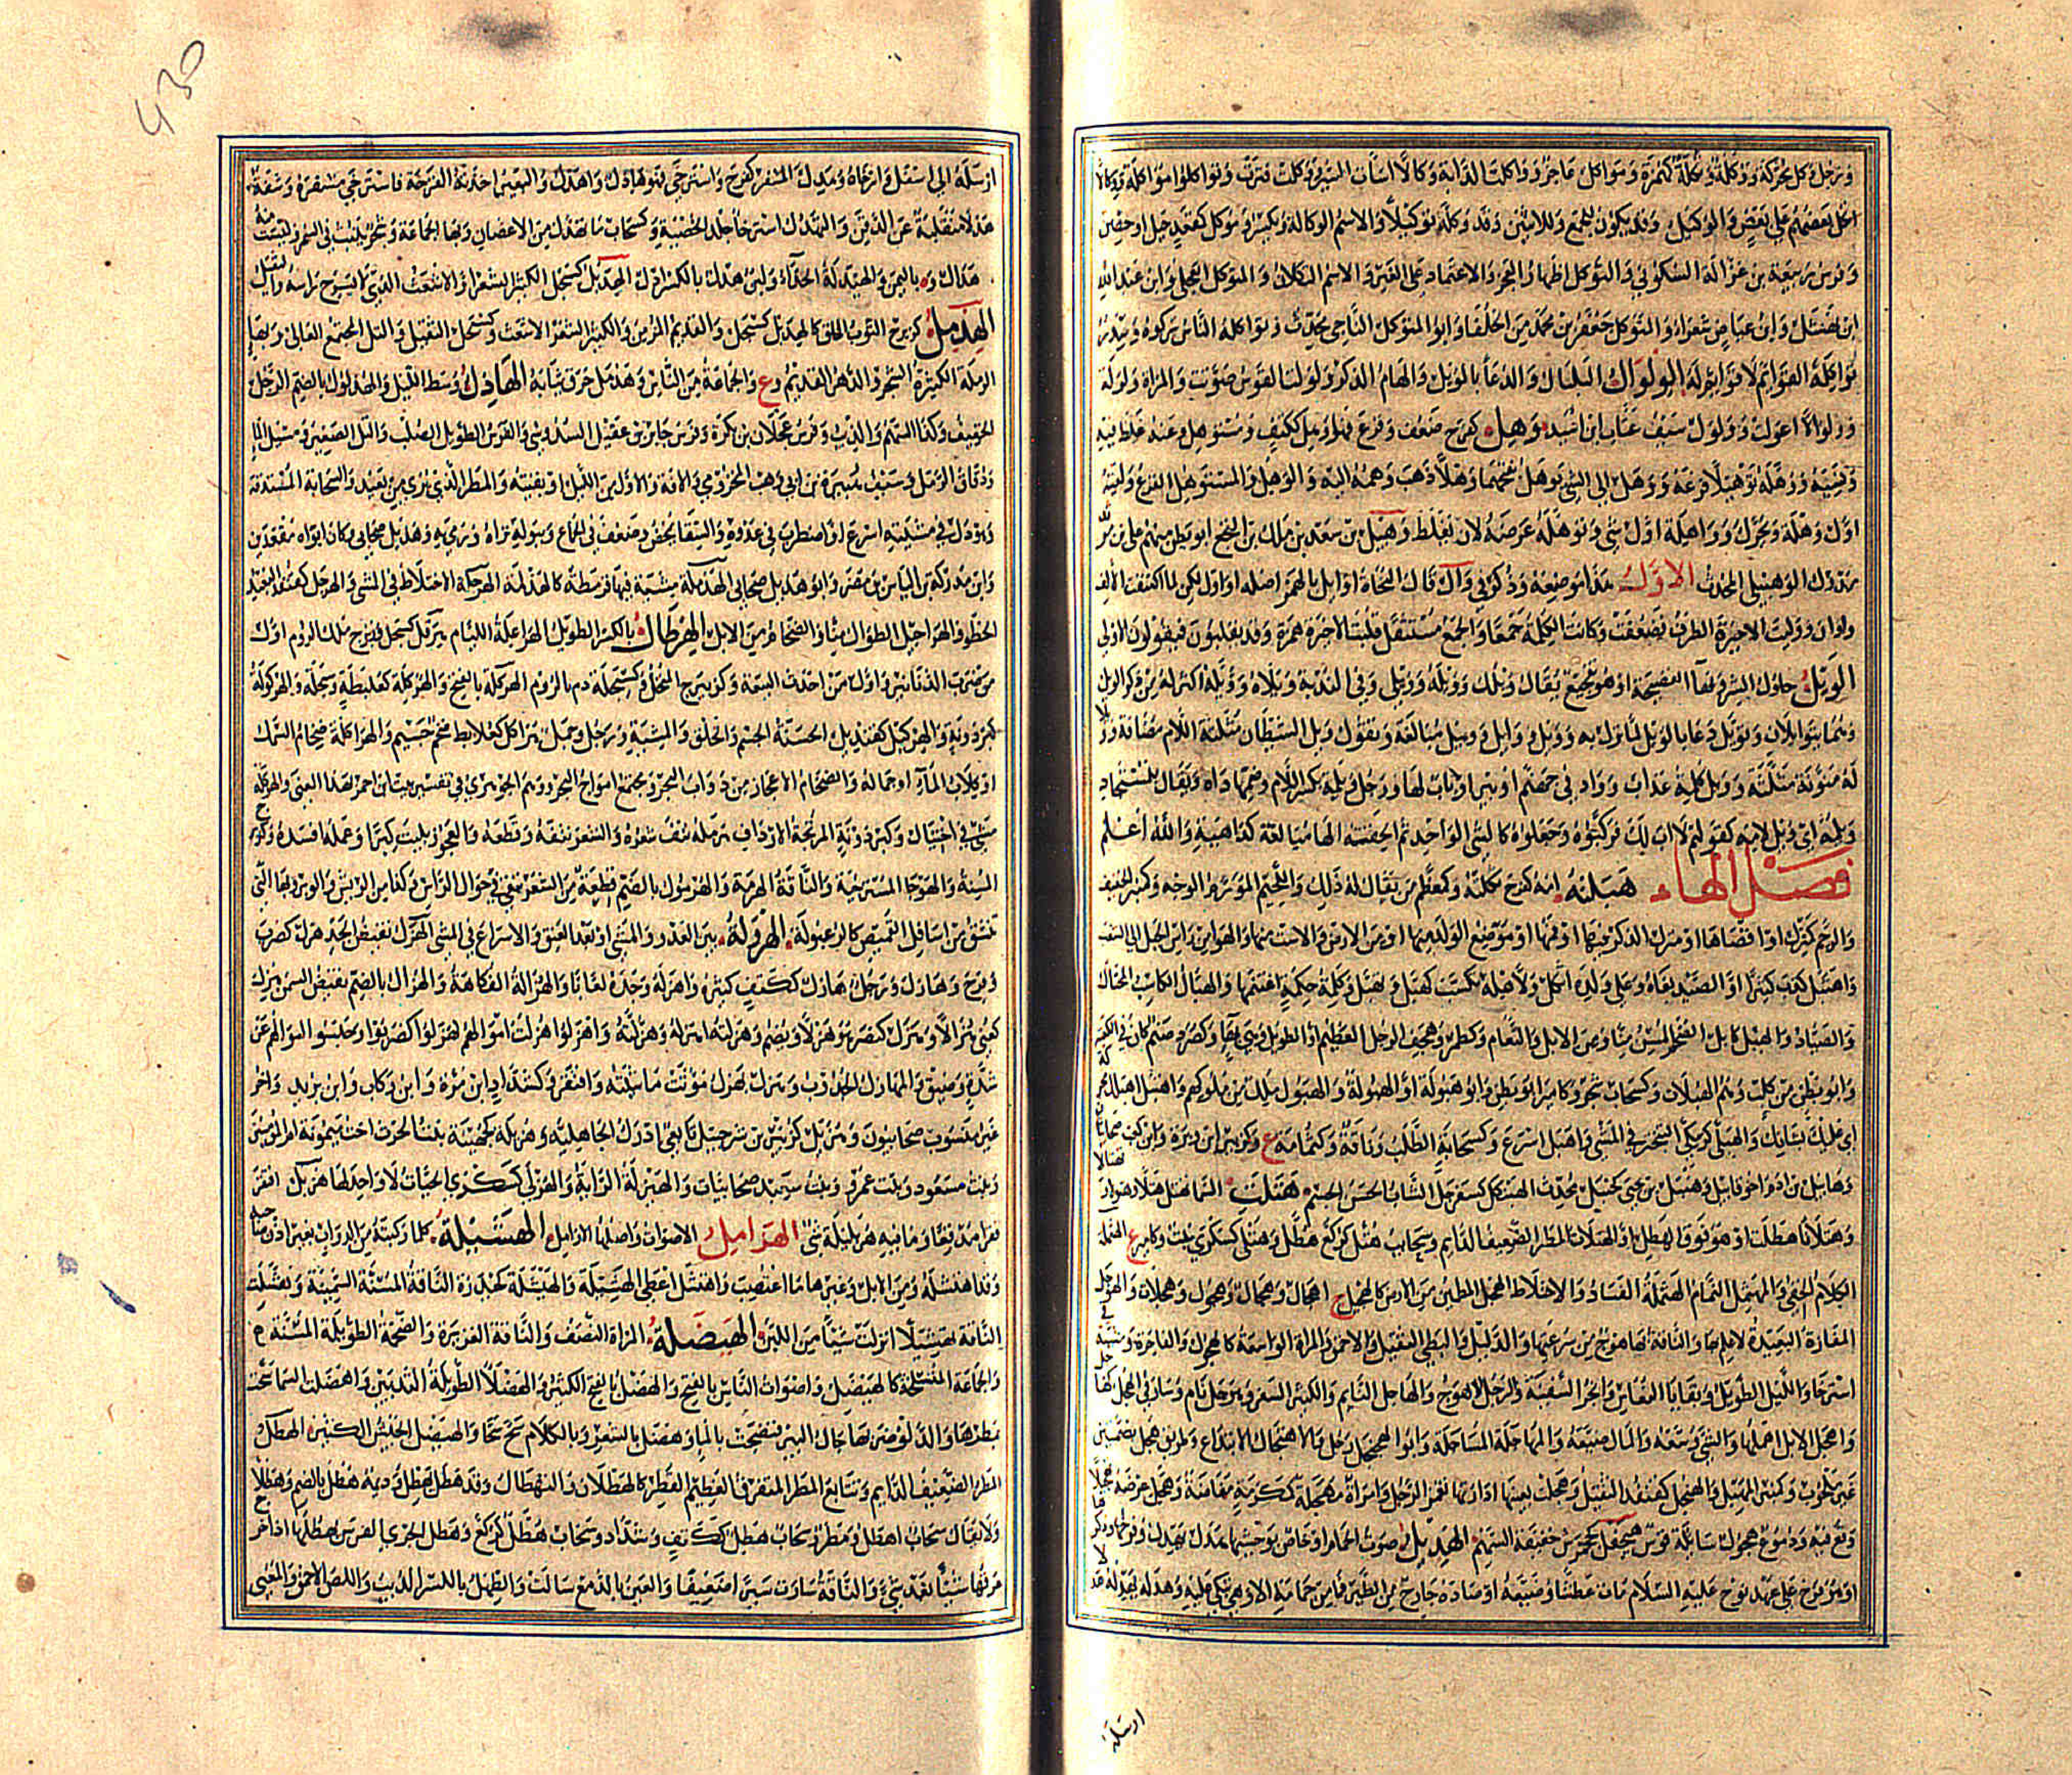 ورجل وكل محركة ووكلة وتكلة كهمزة ومواكل عاجز وواكلت الدابة وكالا أساءت السير ووكلت فترت وتواكلوا مواكلة ووكالا
اتكل بعضهم على بعض والوكيل وقد يكون للجمع وللانثى وقد وكله توكيلا والاسم الوكالة ويكسر وموكل كمقعد جبل او حصن
وفرس ربيعة بن غزالة السكوني والتوكل اظهار العجز والاعتماد على الغير والاسم التكلان والمتوكل العجلي وابن عبد الله
ابن نهشل وابن عياض شعراء والمتوكل جعفر بن محمد من الخلفا وابو المتوكل الناجي محدث وتواكله الناس تركوه
مواكلة القوائم لا قوايم له الولوال البلبال والدعا بالويل والهام الذكر وولولت القوس صوتت والمراة ولولة
وولوالا اعولت وولول سيف عتاب ابن اسيد وهل كفرح ضعف وفزع فهو وهل ككتف ومستوهل وعنه غلط فيه
ونسيه ووهله توهيلا فزعه ووهل الى الشئ يوهل بفتحهما وهلا ذهب وهمه اليه والوهل والمستوهل الفزع ولقيته
اول وهلة ويحرك وواهلة اول شئ وتوهله عرضه لان يغلط ووهبيل بن سعد بن مالك بن النخع ابو بطن منهم علي بن
مدرك الوهبيلي المحدث الاول هذا موضعه وذكر في وأل قال النحاة اوايل بالهمز اصله اواول لكن لما اكتنفت الالف
واوان ووليت الاخيرة الطرف فضعفت وكانت الكلمة جمعا والجمع مستثقل قلبت الاخيرة همزة وقد يقلبون فيقولون الاوالي
الويل حلول الشر وبها الفضيحة او هو تفجيع يقال ويله وويلك وويلي وفي الندبة ويلاه وويله اكثر له من ذكر الويل
وهما يتوايلان وتويل دعا بالويل لما نزل به وويل وايل ووئيل مبالغة وتقول ويل الشيطان مثلثة اللام مضافة
له منونة مثلثة وويل كلمة عذاب وواد في جهنم او بئر او باب لها ورجل ويلمه بكسر اللام وضمها داه ويقال للمستجاد
ويلمه اي ويل لامه كقولهم لا اب لك فركبوه وجعلوه كالشئ الواحد ثم الحقته الها مبالغة كداهية والله اعلم
فصل الهاء هبلته امه كفرح ثكلته وكمعظم من يقال له ذلك واللحيم المورم الوجه
والرحم كمنزل او اقصاها او مسلك الذكر منها او فمها او موضع الولد منها او من الارض والاست
واهتبل كذب كثيرا او الصيد بغاه وعلى ولده اثكل ولاهله تكسب كهبل وتهبل وكلمة حكمة اغتنمها والهبال الكاسب المحتال
والصياد والهبل كابل الضخم المسن منا ومن الابل والنعام وكطمر وهجف الرجل العظيم او الطويل وهي بها وكصرد صنم كان في الكعبة
وابو بطن من كلب وهم الهبلات وكسحاب شجر وكامير ابو بطن وابو هبولة او الهبولة والهبول ملك من ملوكهم واهتبل هبلك محركة
اي عليك بشانك والهبلى كزمكى التبختر في المشي واهبل اسرع وكسحابة الطلب وناقة وكثمامة ع وكزبير ابن وبرة وابن كعب صحابيان
وهابيل بن ادم اخو قابيل وهنبل بن يحيى كحنبل محدث الهبركل كسفرجل الشاب الحسن الجسم هتلت السما تهتل هتلا وهتولا
وهتلانا هطلت او هو فوق الهطل او الهتلان المطر الضعيف الدايم وسحايب هتل كركع هطل وهتلى كسكرى نبت وكامير ع الهتملة
الكلام الخفي والمهتمل النمام الهثملة الفساد والاختلاط الهجل المطمئن من الارض كالهجيل ج اهجال وهجال وهجول وهجلان والهوجل
المفازة البعيدة لا علم بها والناقة بها هوج من سرعتها والدليل والبطئ الثقيل والاحمق والمراة الواسعة كالهجول والفاجرة ومشية
استرخا والليل الطويل وبقايا النعاس وانجر السفينة والرجل الاهوج والهاجل النايم والكثير السفر وهوجل نام وسار في الهجل
واهجل الابل اهملها والشئ وسعه والمال ضيعه والمهاجلة المساجلة وابو الهجنجل رجل والاهتجال الابتداع وطريق هجل بضمتين
غير ملحوب وكمنبر المهبل والهنجل كقنفذ الثقيل وهجلت بعينها ادارتها تغمز الرجل وامراة مهجلة كمكرمة مفضاة وهجل عرضه
وقع فيه ودموع هجول سايلة قوس هجفل كجحمرش خفيفة السهم الهديل صوت الحمام او خاص بوحشيها هدل يهدل وفرخها او ذكرها
او هو فرخ على عهد نوح عليه السلام مات عطشا وضيعة او صاده جارح من الطير فما من حمامة الا وهي تبكي عليه وهدله يهدله هدلا
ارسله
430
ارسله الى اسفل وارخاه وهدل المشفر كفرح واسترخى فهو هادل واهدل والبعير اخذته القرحة فاسترخى مشفره وشفة
هدلا منقلبة على الذقن والتهدل استرخا جلد الخصية وكسحاب ما تهدل من الاغصان وبها الجماعة وشجرة تنبت في السمر وليست منه
هدال ة باليمن والهيدلة الحداء ولبن هدل بالكسر ادل الهدبل كسبحل الكثير الشعر او الاشعث الذي لا يسرح راسه والثقيل
الهدمل كزبرج الثوب الخلق كالهدمل كسبحل والقديم المزمن والكثير الشعر الاشعث وكسبحل الثقيل والتل المجتمع العالي وبها
الرملة الكثيرة الشجر والدهر القديم وع والجماعة من الناس وهدمل خرق ثيابه الهاذل وسط الليل والهذلول بالضم الرجل
الخفيف وكذا السهم والذيب وفرس عجلان بن نكرة وفرس جابر بن عقيل السدوسي والفرس الطويل الصلب والتل الصغير ومسيل الماء
ودقاق الرمل وسيف هبيرة بن ابي وهب المخزومي والافة والاول من الليل او بقيته والمطر الذي يرى من بعيد والسحابة المستدقة
وهوذل في مشيته اسرع او اضطرب في عدوه والسقا تمخض وضعف في الجماع وببوله نزاه ورمى به وهذيل صحابي وكان ابواه مقعدين
وابن مدركة بن الياس بن مضر وابو هذيل صحابي الهذملة مشية فيها قرمطة كالهذلمة الهرجلة الاختلاط في المشي والهرجل كقنفذ البعيد
الخطو والهراجيل الطوال منا والضخام من الابل الهرطال بالكسر الطويل الهراعلة اللئام هرقل كسبحل وزبرج ملك الروم اول
من ضرب الدنانير واول من احدث البيعة وكزبرج المنخل وكسبحلة دم بالروم الهركلة بالفتح والهركلة كعلبطة وسبحلة والهركولة
كبرذونة والهركيل كقنديل الحسنة الجسم والخلق والمشية ورجل وجمل هراكل كعلابط ضخم جسيم والهراكلة ضخام السمك
او كلاب الماء او جماله والضخام الاعجاز من دواب البحر ومجتمع امواج البحر ووهم الجوهري في تفسير بيت ابن احمر بهذا المعنى والهركلة
مشي في اختيال وكبرذونة المرتجة الارداف هرمله نتف شعره والشعر نتفه وقطعه والعجوز بليت كبرا وعمله افسده وكزبرج
المسنة والهوجا المسترخية والناقة الهرمة والهرمول بالضم قطعة من الشعر تبقى في حوالي الراس وكذا من الريش والوبر وبها التي
تنشق من اسافل القميص كالرعبولة الهرولة بين العدو والمشي او بعد العنق والاسراع في المشي الهزل نقيض الجد هزل كضرب
وفرح وهازل ورجل هزل ككتف كثيره واهزله وجده لعابا والهزالة الفكاهة والهزال بالضم نقيض السمن هزل
كعني هزالا وهزل كنصر هزلا ويضم وهزلته اهزله وهزلته واهزلوا هزلت اموالهم كهزلوا كضربوا وحبسوا اموالهم عن
شدة وضيق والمهازل الجدوب وهزل يهزل موتت ماشيته وافتقر وكشداد ابن مرة وابن ذباب وابن يزيد واخر
غير منسوب صحابيون وهزيل كزبير بن شرحبيل تابعي ادرك الجاهلية وهزيلة كجهينة بنت الحرث اخت ميمونة ام المؤمنين
وبنت مسعود وبنت عمرو وبنت سعيد صحابيات والهيزلة الراية والهزلى كسكرى الحيات لا واحد لها هزبل افتقر
فقرا مدقعا وما فيه هزبليلة شئ الهزامل الاصوات واصلها الازامل الهشيلة كلما ركبته من الدواب بغير اذن صاحبه
وقد اهتشله ومن الابل وغيرها ما اغتصب واهشل اعطى الهشيلة والهيشلة كحيدرة الناقة المسنة السمينة وهشلت
الناقة تهشيلا انزلت شيئا من اللبن الهيضلة المراة النصف والناقة الغزيرة والضخمة الطويلة المسنة ع
والجماعة المتسلحة كالهيضل واصوات الناس بالفتح والهضل بالفتح الكثير والهضلاء الطويلة الثديين واهضلت السما سحت
بمطرها والدلو ضربتها جال البير فنضحت بالما وهضل بالشعر وبالكلام سح سحا والهيضل الجيش الكثير الهطل
المطر الضعيف الدايم وتتابع المطر المتفرق العظيم القطر كالهطلان والتهطال وقد هطل يهطل وديمة هطل بالضم وهطلاء
ولا يقال سحاب اهطل ومطر وسحاب هطل ككتف وشداد وسحاب هطل كركع وهطل الجري الفرس يهطلها اذا خر
عرقها شيئا بعد شئ والناقة سارت سيرا ضعيفا والعين بالدمع سالت والهطل بالكسر الذيب واللص الاحمق والمعيي